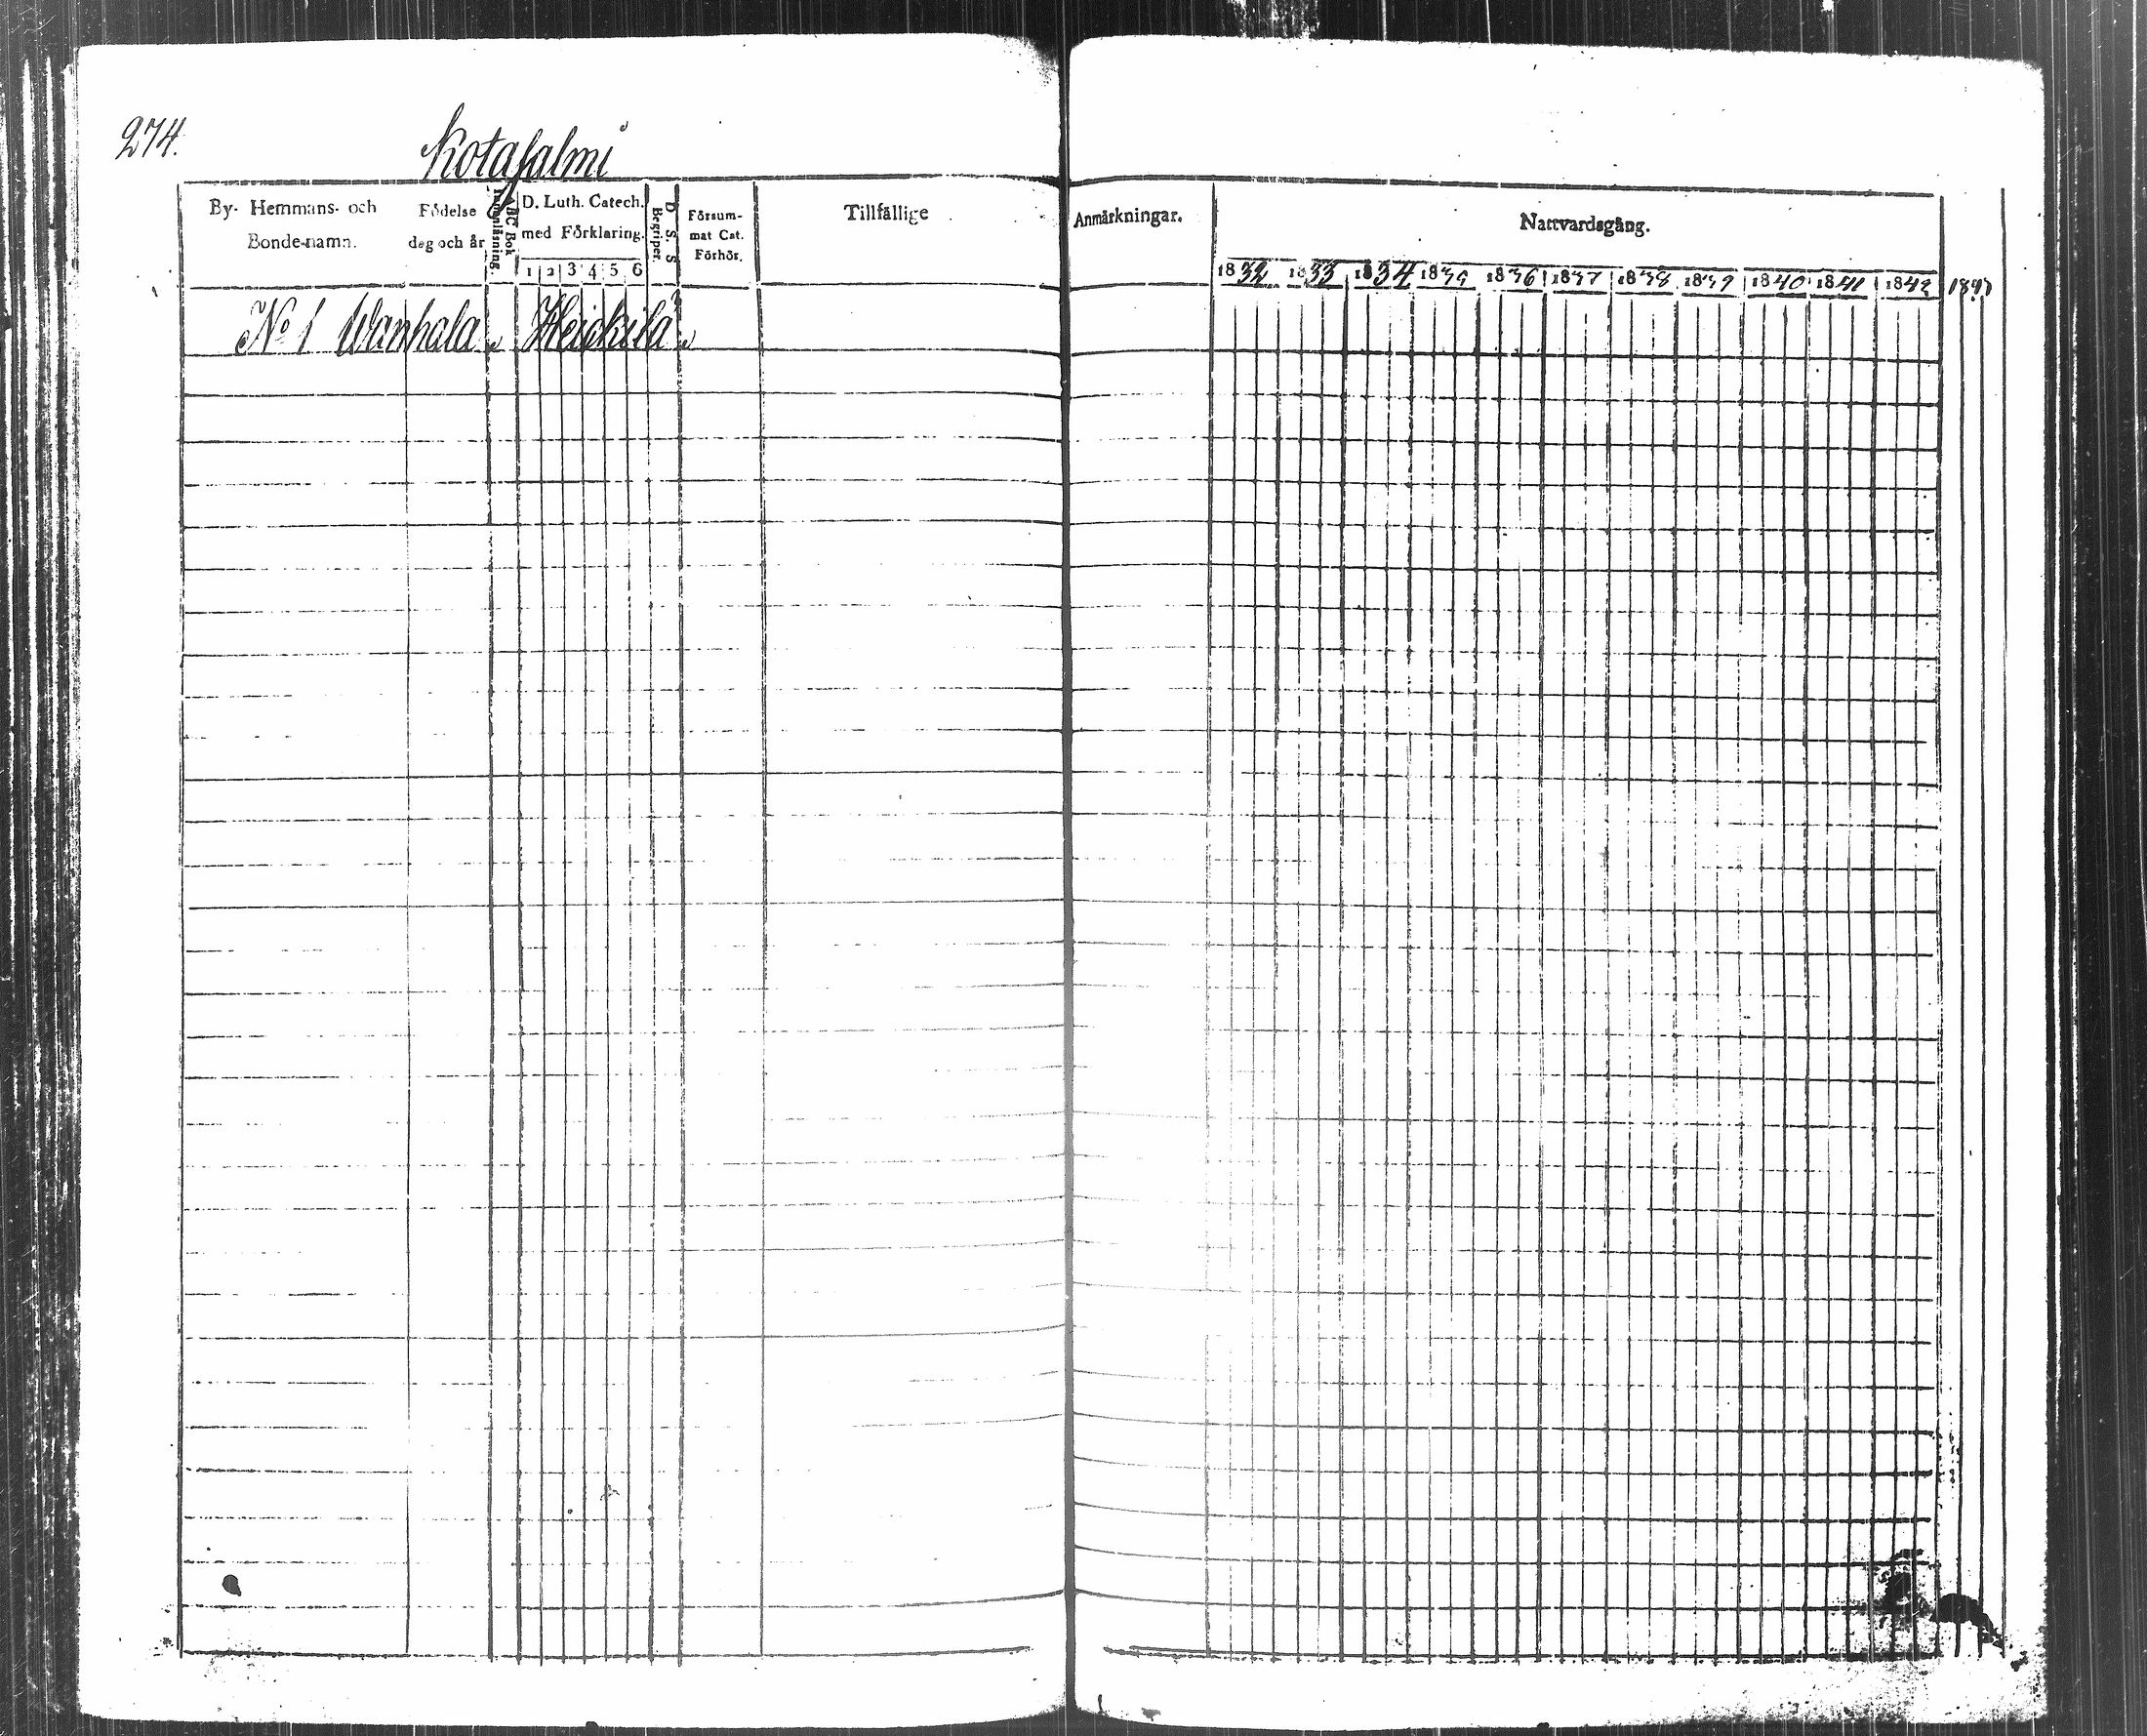 274.
Kotasalmi
By- Hemmans- och
Bonde-namn.
Födelse
dag och år
Innanläsning.
ABC Bok
D. Luth. Catech.
med Förklaring.
1 2 3 4 5 6
Begriper.
D. S. S
Försum-
mat Cat.
Förhör.
Tillfällige
Anmärkningar.
Nattvardsgång.
1832 1833 1834 1835 1836 1837 1838 1839 1840 1841 1842
No 1 Wanhala Heickilä